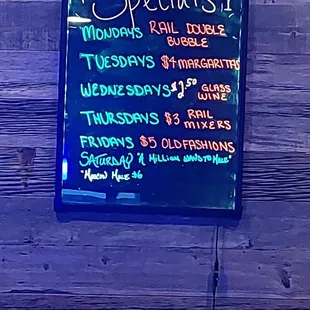 Specials!
MONDAYS RAIL DOUBLE
BUBBLE
TUESDAYS $4 MARGARITAS
WEDNESDAYS $2.50 GLASS
WINE
THURSDAYS $3 RAIL
MIXERS
FRIDAYS $5 OLD FASHIONS
SATURDAY "A MILLION WAYS TO MULE"
MULE $6